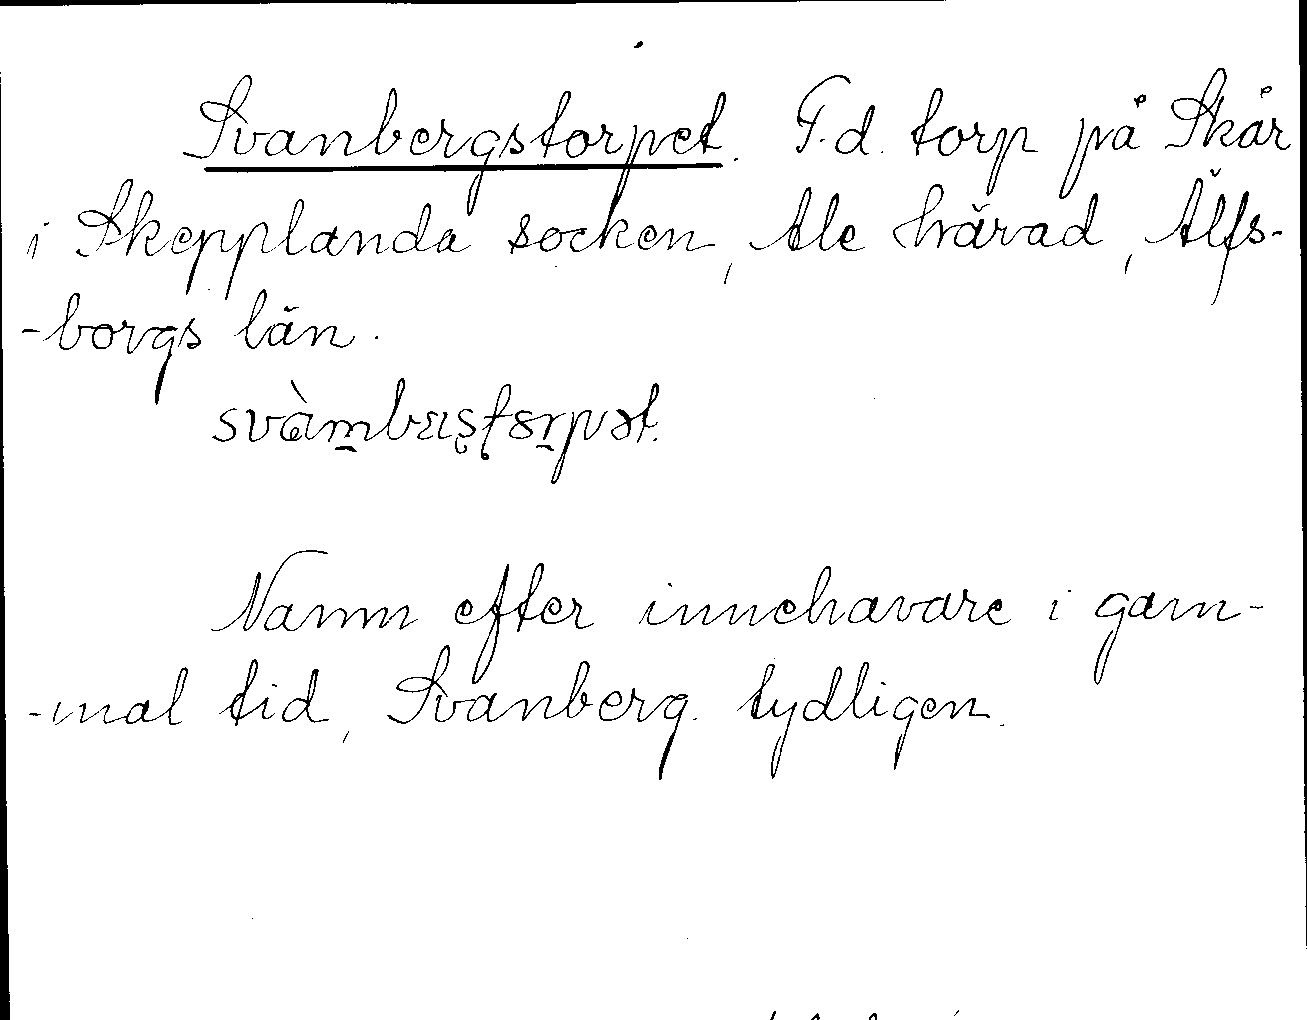 Svanbergstorpet. F.d. torp på Skår
i Skepplanda socken, Ale härad, Älfs-
-borgs län.
Namn efter innehavare i gam-
-mal tid, Svanberg tydligen.